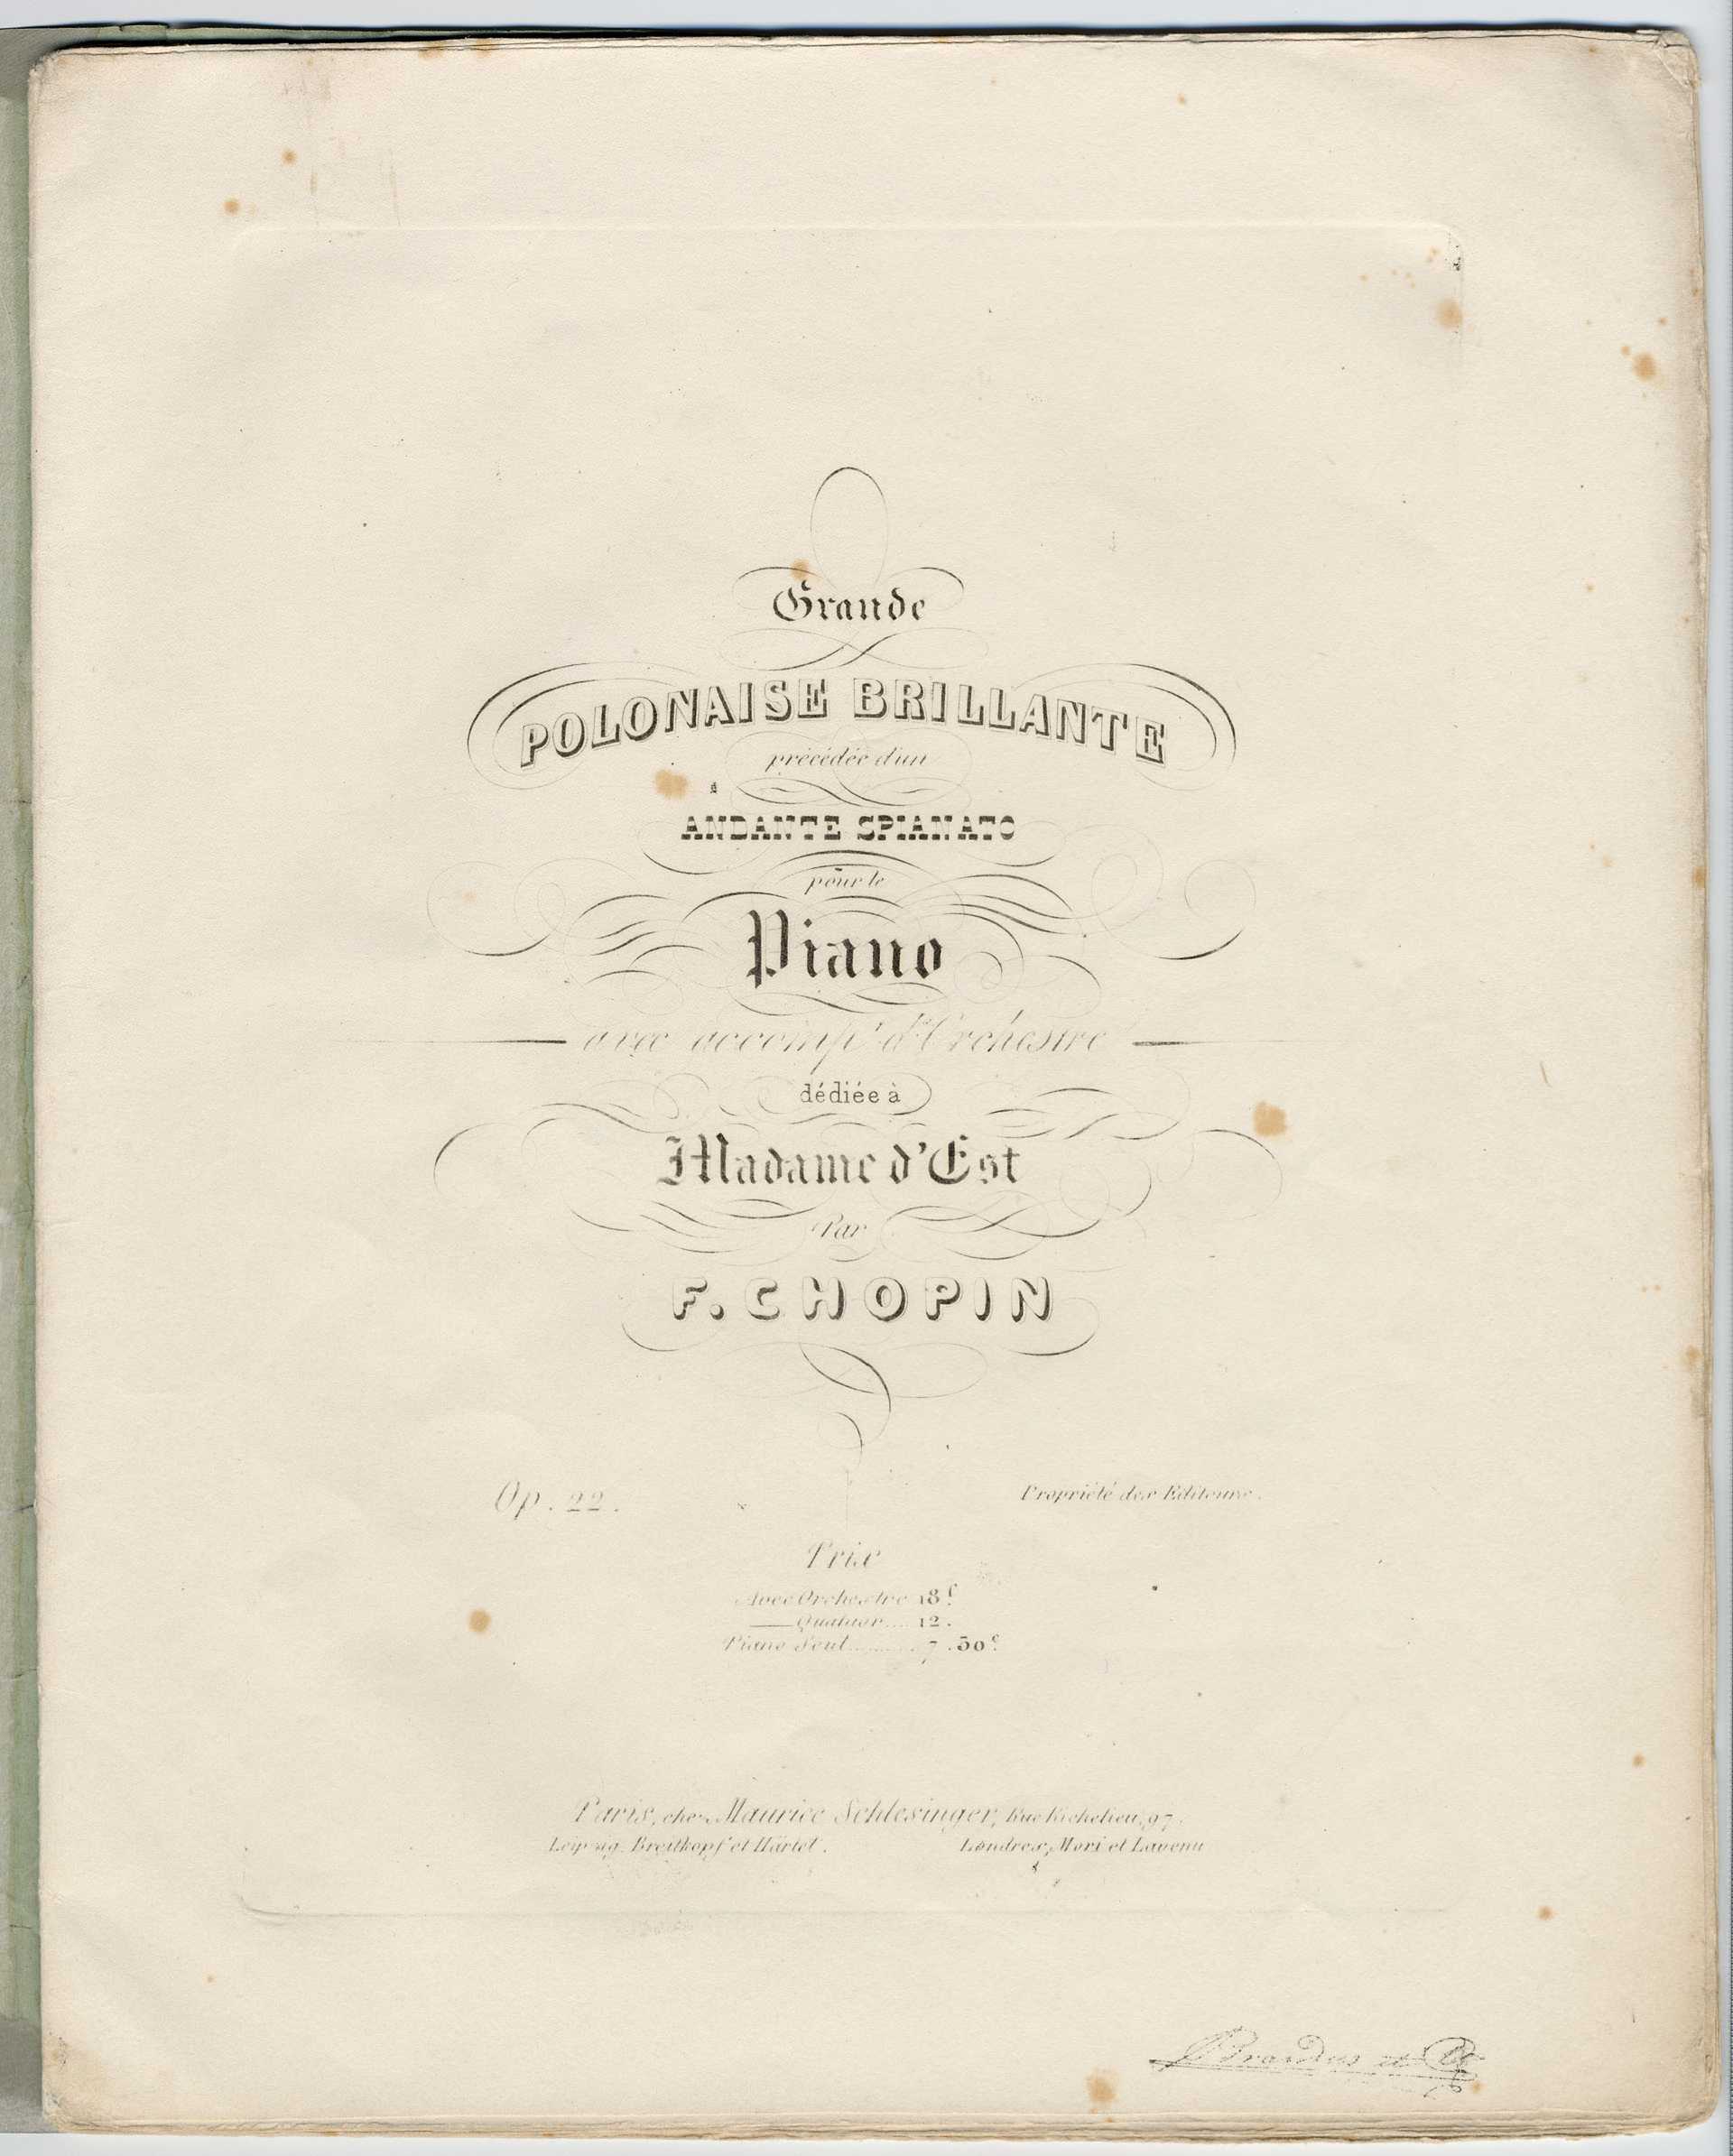 Grande
POLONAISE BRILLANTE
précédée d'un
ANDANTE SPIANATO
pour le
Piano
avec accomp.t d'Orchestre
dédiée à
Madame d'Est
Par
F. CHOPIN
Op. 22.
Propriété des Editeurs.
Prix
Avec Orchestre 18f.
Quatuor.... 12.
Piano Seul.......... 7.50c.
Paris, chez Maurice Schlesinger, Rue Richelieu, 97.
Leipzig, Breitkopf et Härtel.
Londres, Mori et Lavenu
Brandus et Cie